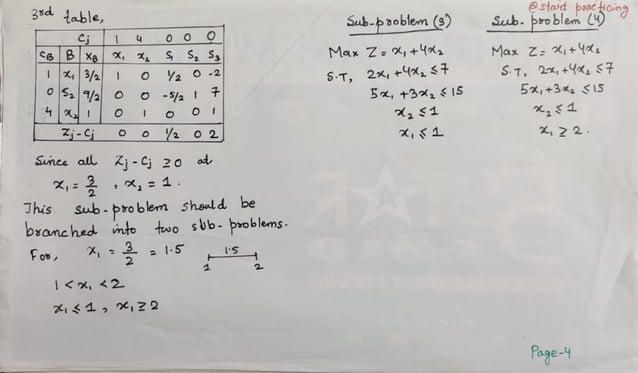 @start practicing
3rd table,
Cj 1 4 0 0 0
CB B XB x₁ x₂ S₁ S₂ S₃
1 x₁ 3/2 1 0 1/2 0 -2
0 S₂ 9/2 0 0 -5/2 1 7
4 x₂ 1 0 1 0 0 1
Zj-Cj 0 0 1/2 0 2
Since all Zj-Cj ≥0 at
x₁ = 3/2 , x₂ = 1.
This sub-problem should be
branched into two sub-problems.
For, x₁ = 3/2 = 1.5
1.5
1 2
1 < x₁ < 2
x₁ ≤ 1 , x₁ ≥ 2
Sub-problem (3)
Max Z = x₁ + 4x₂
S.T, 2x₁+4x₂ ≤ 7
5x₁+3x₂ ≤ 15
x₂ ≤ 1
x₁ ≤ 1
Sub-problem (4)
Max Z = x₁ + 4x₂
S.T, 2x₁+4x₂ ≤ 7
5x₁+3x₂ ≤ 15
x₂ ≤ 1
x₁ ≥ 2.
Page-4